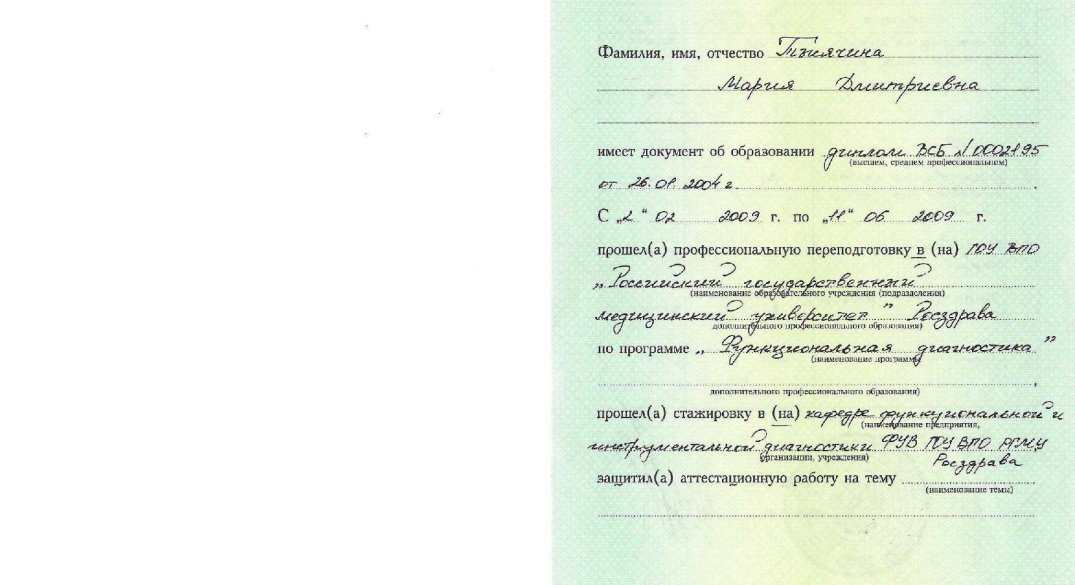 Фамилия, имя, отчество
Мария Дмитриевна
имеет документ об образовании диплом ВСБ № 0002195
(высшем, среднем профессиональном)
от 26.01.2004 г.
С „2“ 02 2009 г. по „11“ 06 2009 г.
прошел(а) профессиональную переподготовку в (на) ГОУ ВПО
„Российский государственный
(наименование образовательного учреждения (подразделения)
медицинский университет” Росздрава
дополнительного профессионального образования)
по программе „Функциональная диагностика”
(наименование программы
,
дополнительного профессионального образования)
прошел(а) стажировку в (на) кафедре функциональной и
(наименование предприятия,
инструментальной диагностики ФУВ ГОУ ВПО РГМУ
организации, учреждения)
Росздрава
защитил(а) аттестационную работу на тему
(наименование темы)